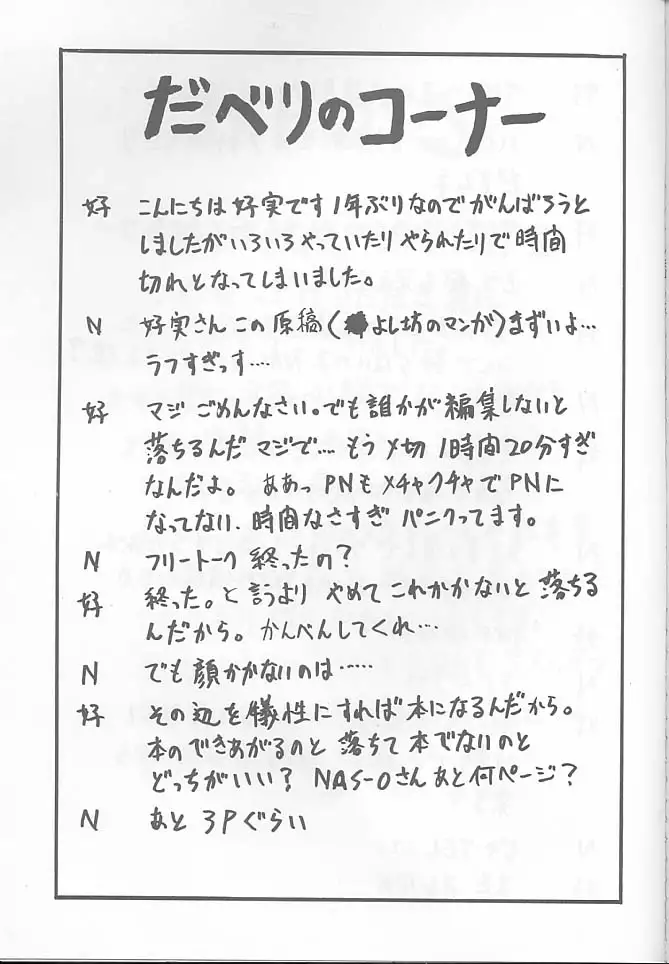 だべりのコーナー
好 こんにちは好実です1年ぶりなのでがんばろうと
しましたがいろいろやっていたりやられたりで時間
切れとなってしまいました。
N 好実さんこの原稿(よし坊のマンガ)まずいよ…
ラフすぎっす…
好 マジごめんなさい。でも誰かが編集しないと
落ちるんだマジで…もう〆切1時間20分すぎ
なんだよ。ああっPNもメチャクチャでPNに
なってない、時間なさすぎパニクってます。
N フリートーク終ったの?
好 終った。と言うよりやめてこれかかないと落ちる
んだから。かんべんしてくれ…
N でも顔かかないのは……
好 その辺を犠性にすれば本になるんだから。
本のできあがるのと落ちて本でないのと
どっちがいい?NAS-Oさんあと何ページ?
N あと3Pぐらい